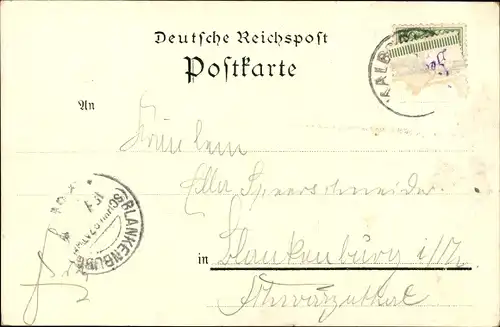 Deutsche Reichspost
Postkarte
An
Fräulein
Ella Speerschneider
in Blankenburg i/Th.
Schwarzathal
BLANKENBURG
(SCHWARZATHAL)
AALB